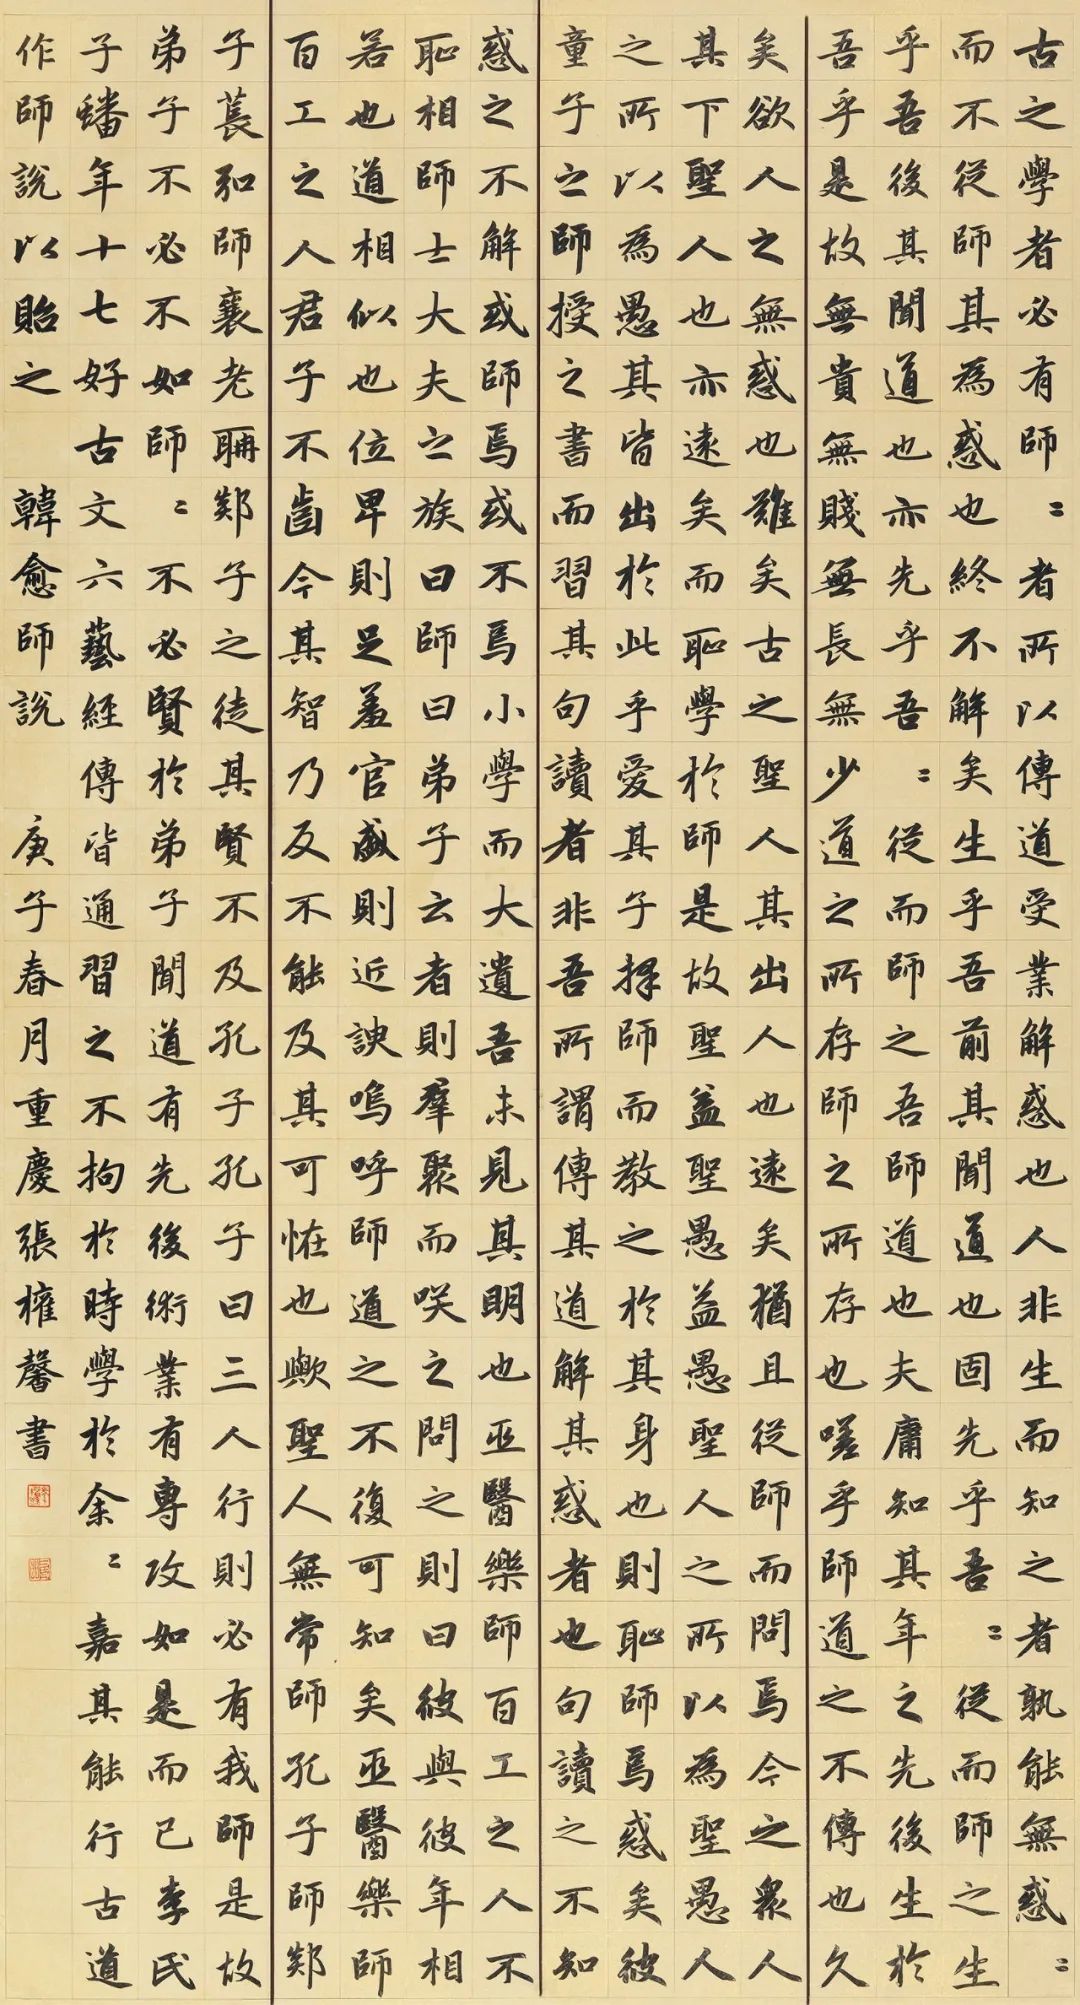 古之學者必有師〻者所以傳道受業解惑也人非生而知之者孰能無惑〻
而不從師其為惑也終不解矣生乎吾前其聞道也固先乎吾〻從而師之生
乎吾後其聞道也亦先乎吾〻從而師之吾師道也夫庸知其年之先後生於
吾乎是故無貴無賤無長無少道之所存師之所存也嗟乎師道之不傳也久
矣欲人之無惑也難矣古之聖人其出人也遠矣猶且從師而問焉今之眾人
其下聖人也亦遠矣而恥學於師是故聖益聖愚益愚聖人之所以為聖愚人
之所以為愚其皆出於此乎愛其子擇師而教之於其身也則恥師焉惑矣彼
童子之師授之書而習其句讀者非吾所謂傳其道解其惑者也句讀之不知
惑之不解或師焉或不焉小學而大遺吾未見其明也巫醫樂師百工之人不
恥相師士大夫之族曰師曰弟子云者則羣聚而咲之問之則曰彼與彼年相
若也道相似也位卑則足羞官盛則近諛嗚呼師道之不復可知矣巫醫樂師
百工之人君子不齒今其智乃反不能及其可恠也歟聖人無常師孔子師郯
子萇弘師襄老聃郯子之徒其賢不及孔子孔子曰三人行則必有我師是故
弟子不必不如師〻不必賢於弟子聞道有先後術業有專攻如是而已李氏
子蟠年十七好古文六藝經傳皆通習之不拘於時學於余〻嘉其能行古道
作師說以貽之 韓愈師說 庚子春月重慶張權馨書